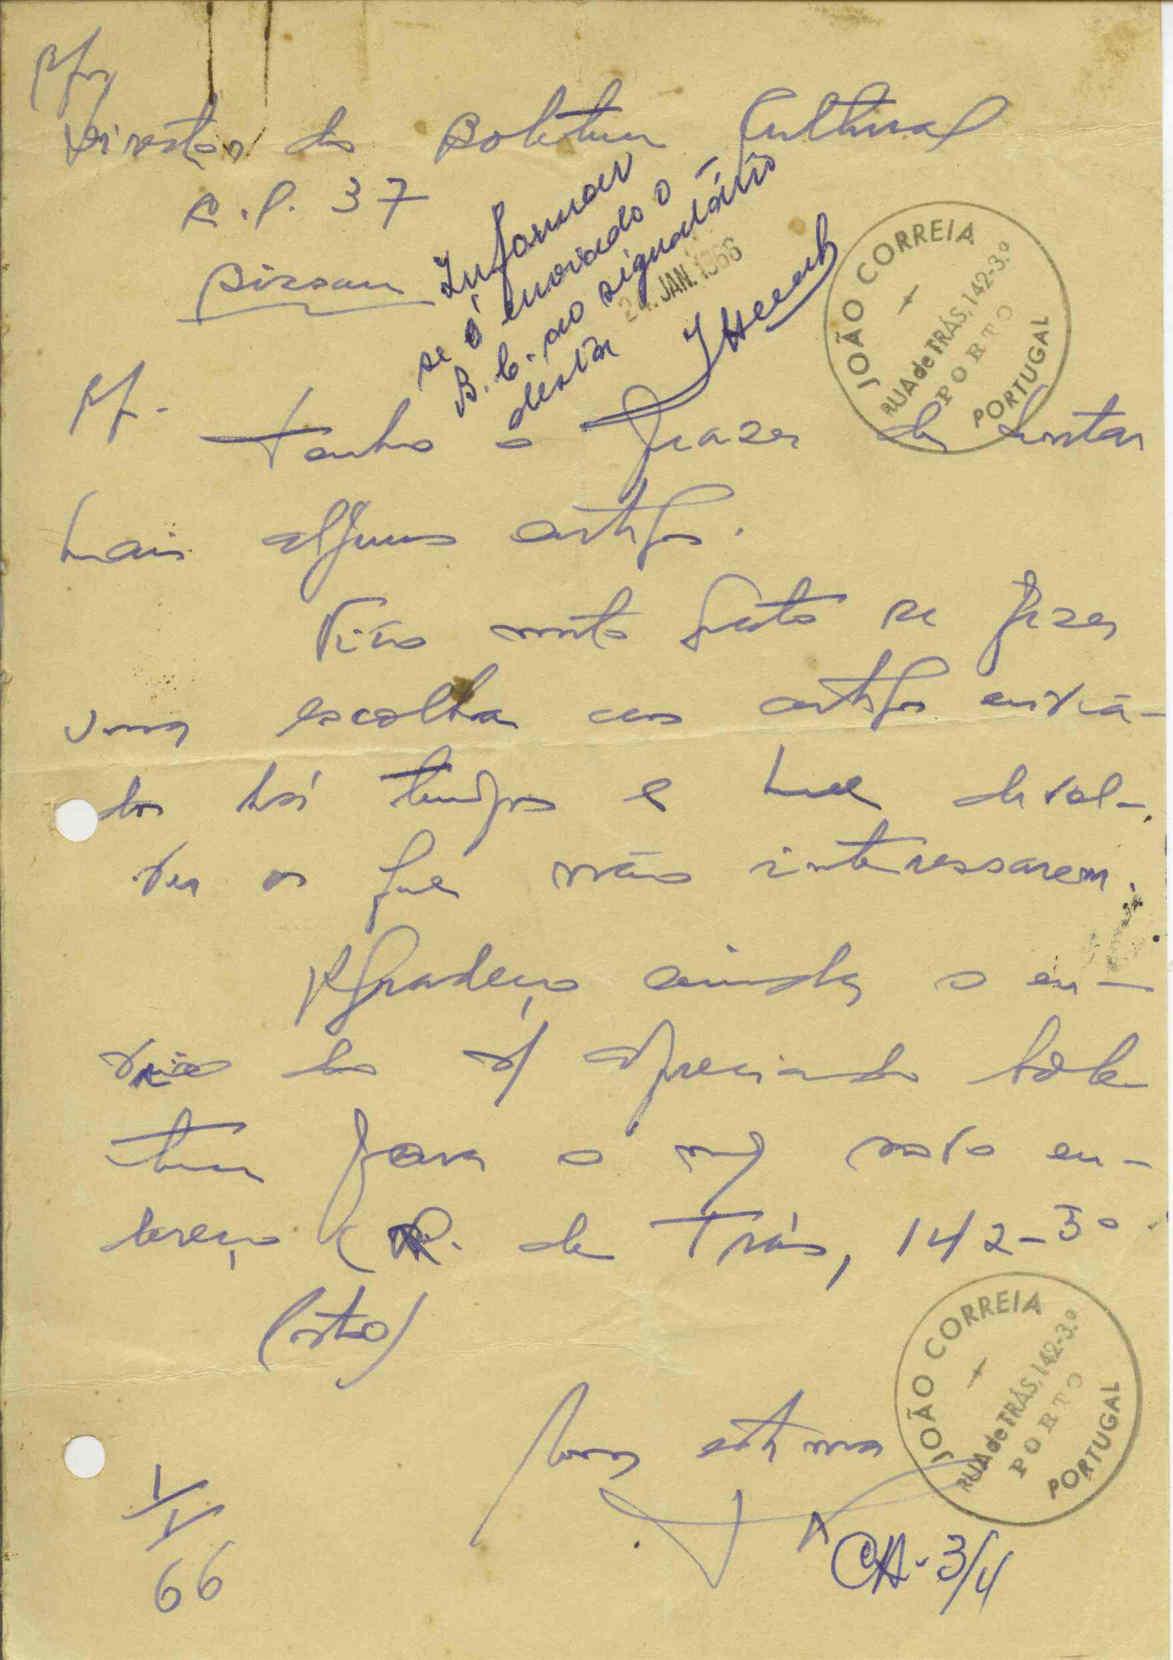 Director do Boletim Cultural
C.P. 37
Bissau
Informar
se é enviado o
B.C. ao signatário
desta
24. JAN. 1966
JOÃO CORREIA
RUA de TRÁS, 142-3.º
PORTO
PORTUGAL
Tenho o prazer de juntar
mais alguns artigos.
Fico muito grato se fizer
uma escolha aos artigos envia-
dos há tempos e me devol-
ver os que não interessarem.
Agradeço ainda o en-
vio do v/ apreciado bole
tim para o m/ novo en-
dereço (R. de Trás, 142-3º
Porto)
JOÃO CORREIA
RUA de TRÁS, 142-3.º
PORTO
PORTUGAL
Com estima
1/1/66
CA-3/4